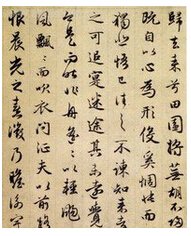 歸去来兮田園將蕪胡不歸
既自以心為形役奚惆悵而
獨悲悟已往之不諫知来者
之可追寔迷途其未遠覺
今是而昨非舟遥々以輕颺
風飄々而吹衣问征夫以前路
恨晨光之熹微乃瞻衡宇